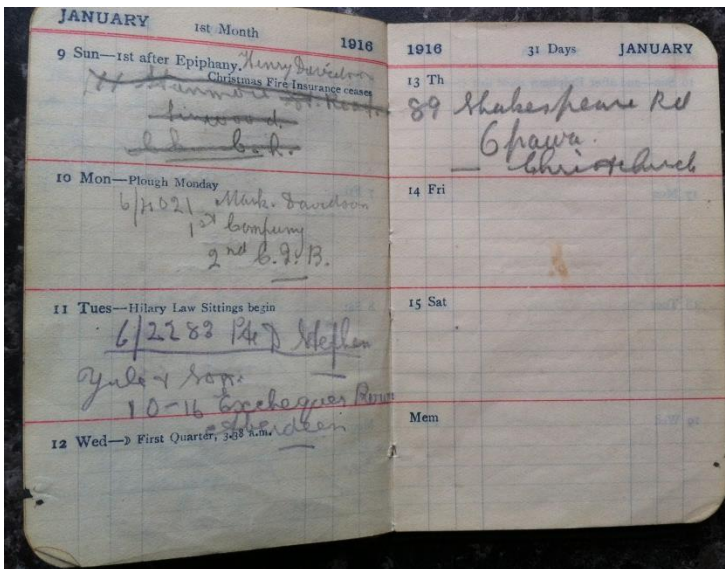 JANUARY 1st Month 1916
9 Sun—1st after Epiphany. Henry Davidson
Christmas Fire Insurance ceases
Stanmore
Linwood
Ch. Ch.
10 Mon—Plough Monday
6/4021 Mark. Davidson
1st Company
2nd C.I.B.
11 Tues—Hilary Law Sittings begin
6/2283 Pte D Stephen
Yule & Sons.
10-16 Exchequer Row
Aberdeen
12 Wed—☽ First Quarter, 3.38 a.m.
1916 31 Days JANUARY
13 Th
89 Shakespeare Rd
Opawa.
Christchurch
14 Fri
15 Sat
Mem